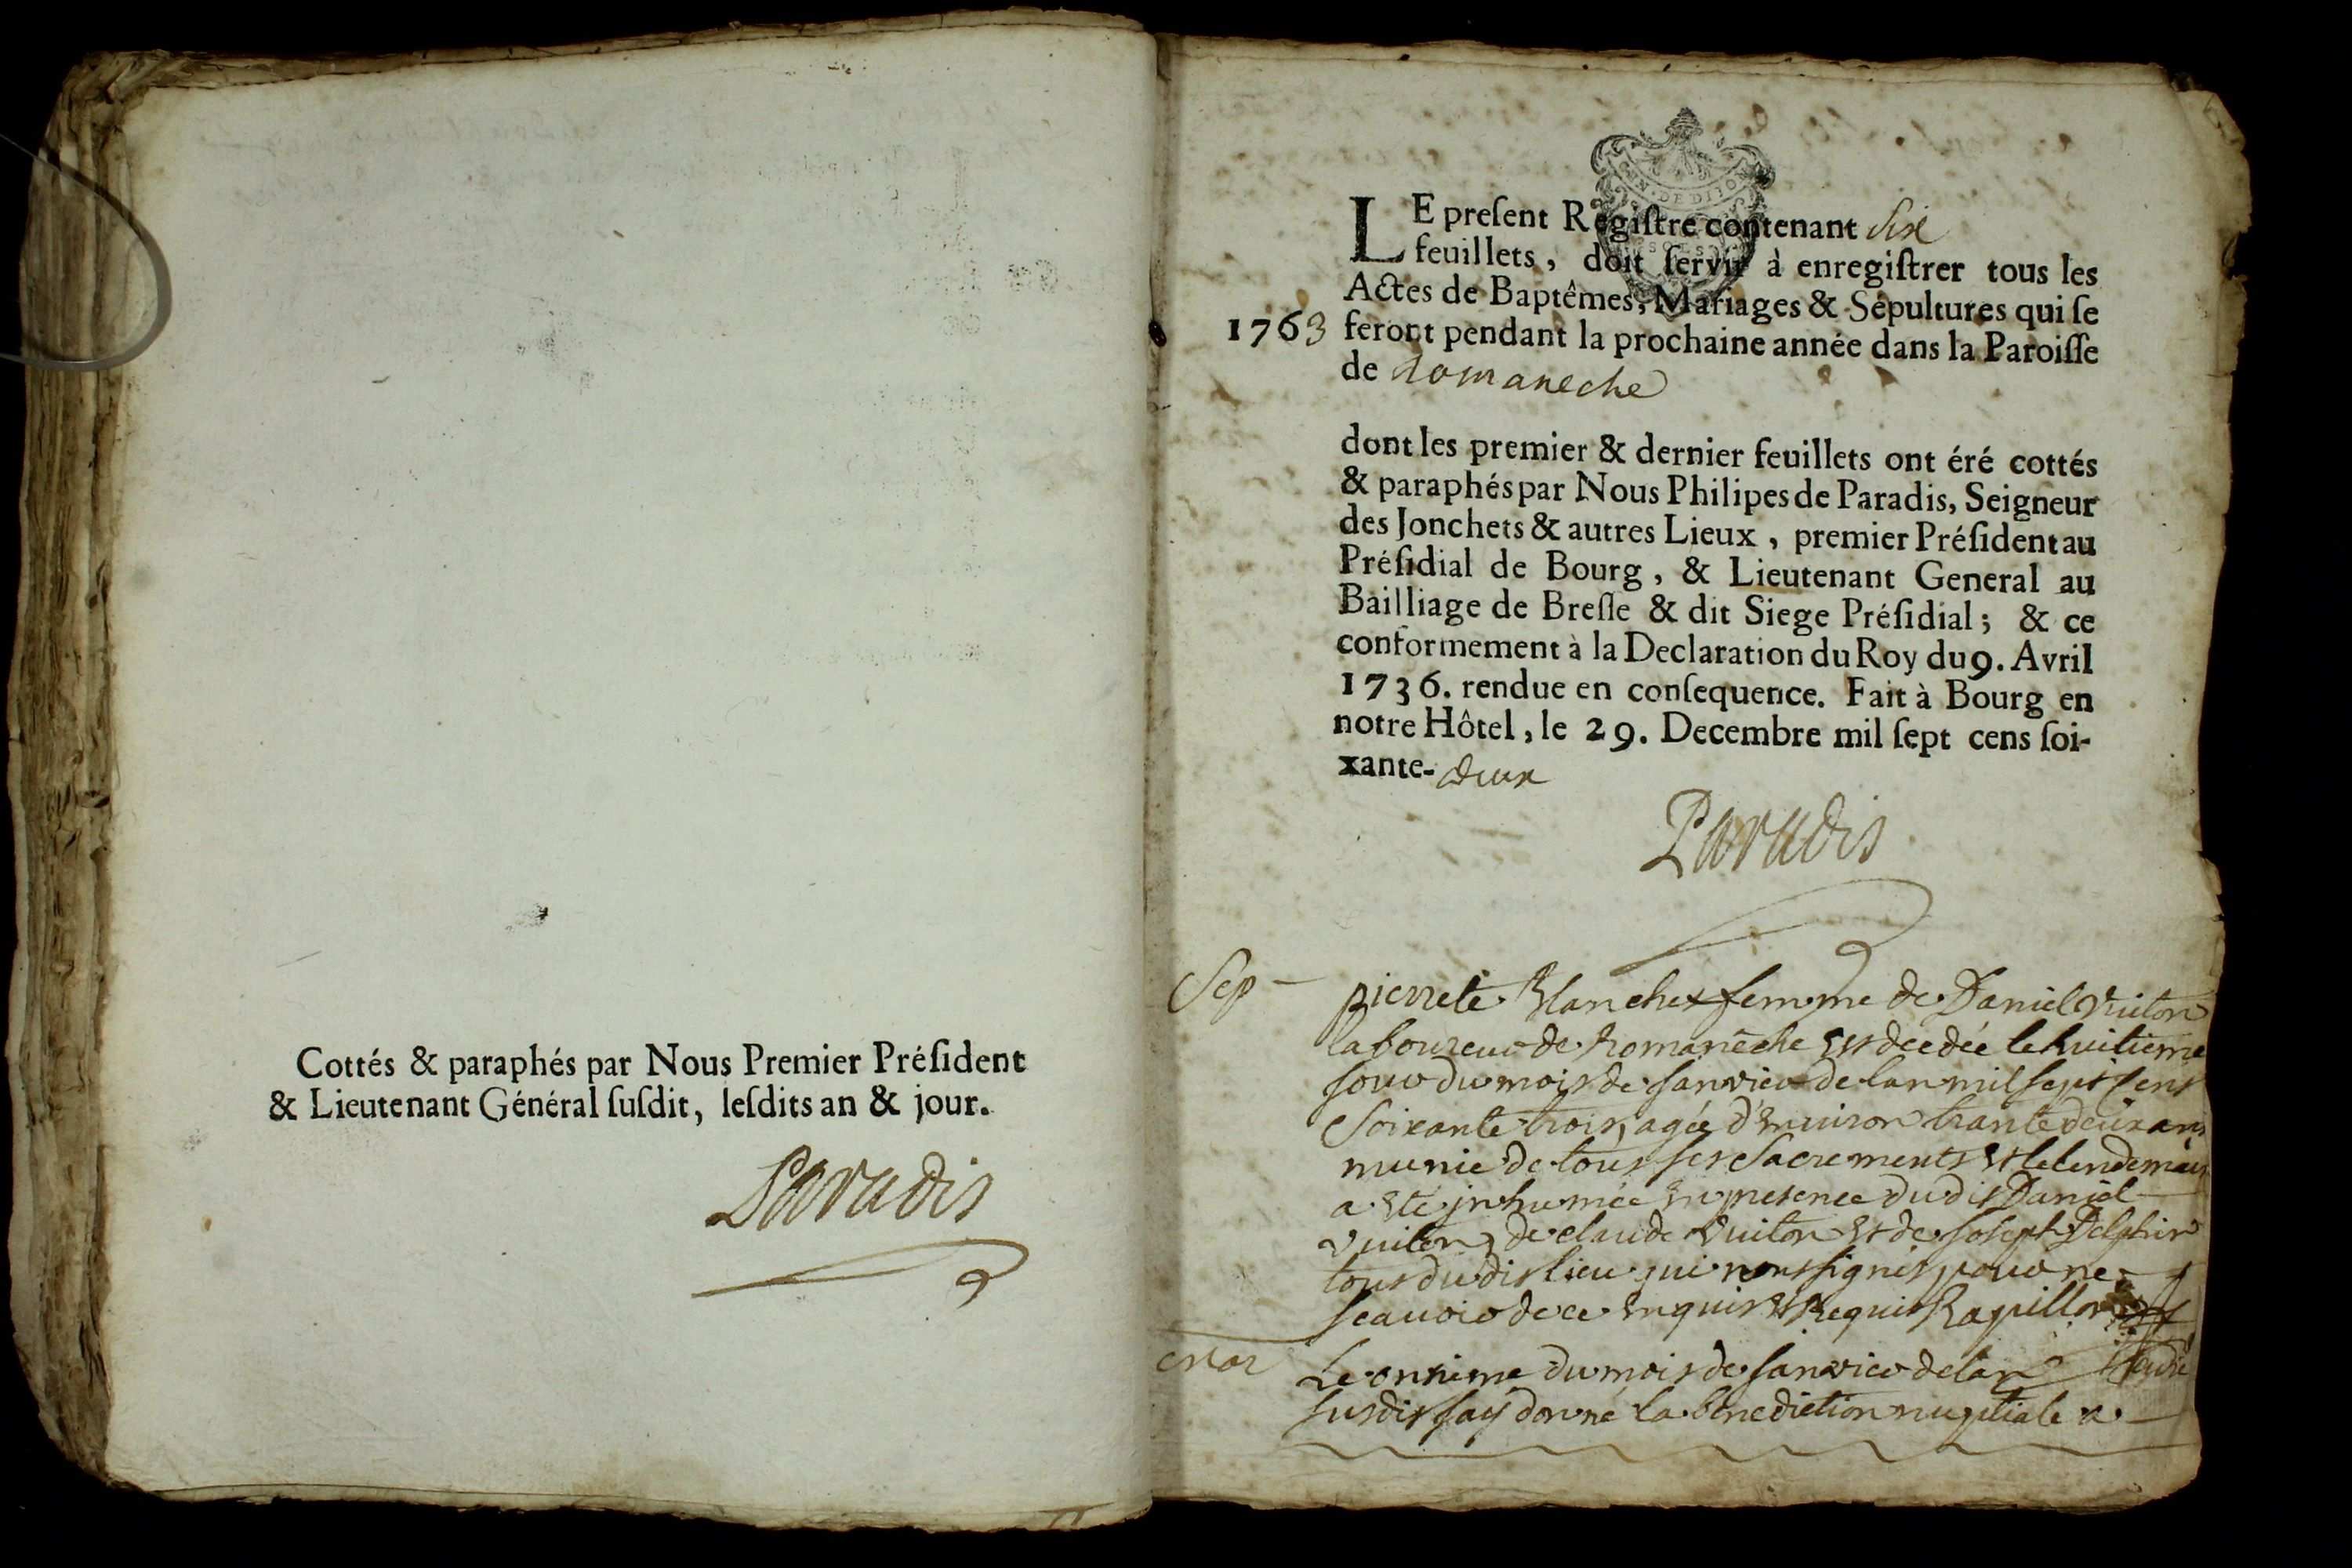 Cottés & paraphés par Nous Premier Préſident
& Lieutenant Général ſuſdit, leſdits an & jour.
Paradis
LE preſent Regiſtre contenant Six
feuillets, doit ſervir à enregiſtrer tous les
Actes de Baptêmes, Mariages & Sépultures qui ſe
1763 feront pendant la prochaine année dans la Paroiſſe
de Romaneche
dont les premier & dernier feuillets ont éré cottés
& paraphés par Nous Philipes de Paradis, Seigneur
des Jonchets & autres Lieux, premier Préſident au
Préſidial de Bourg, & Lieutenant General au
Bailliage de Breſſe & dit Siege Préſidial; & ce
conformement à la Declaration du Roy du 9. Avril
1736. rendue en conſequence. Fait à Bourg en
notre Hôtel, le 29. Decembre mil ſept cens ſoi-
xante-deux
Paradis
Sep - pierrete Blanchet femme de Daniel Vuiton
laboureur de Romanêche est decedée le huitieme
jour du mois de janvier de lan mil sept cent
Soixante trois, agée d'environ trante deux ans
munie de tous ses Sacrements et le lendemain
a ete inhumée en presence du dit Daniel
vuiton, de claude Vuiton et de joseph Delphin
tous du dit lieu qui nont signés pour ne
scavoir de ce enquis et Requis
mar Le onsieme du mois de janvier de lan
susdit jay donné la benediction nuptiale a